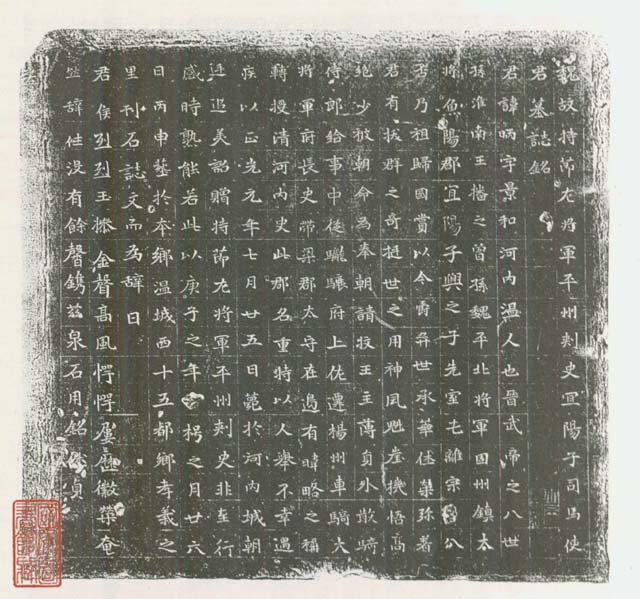 魏故持節左將軍平州刺史宜陽子司馬使
君墓誌銘
君諱昞字景和河內溫人也晉武帝之八世
孫淮南王播之曾孫魏平北將軍固州鎮大
將魚陽郡宜陽子興之子先室屯離宗胄分
否乃祖歸國賞以今爵弈世承華休榮弥著
君有拔群之奇挺世之用神風魁崖機悟高
絕少被朝命為奉朝請牧王主薄員外散騎
侍郎給事中從驤府上佐遷楊州車騎大
將軍府長史帶梁郡太守在邊有暐略之稱
轉授清河內史此郡名重特以人舉不幸遇
疾以正光元年七月廿五日薨於河內城朝
廷追美詔贈持節左將軍平州刺史非至行
感時熟能若此以庚子之年玄枵之月廿六
日丙申塟於本鄉溫城西十五都鄉孝義之
里刊石誌文而為辭曰
君侯烈烈玉操金聲高風愕愕屢歷徽榮奄
辞性沒有餘馨鐫茲泉石用銘休貞